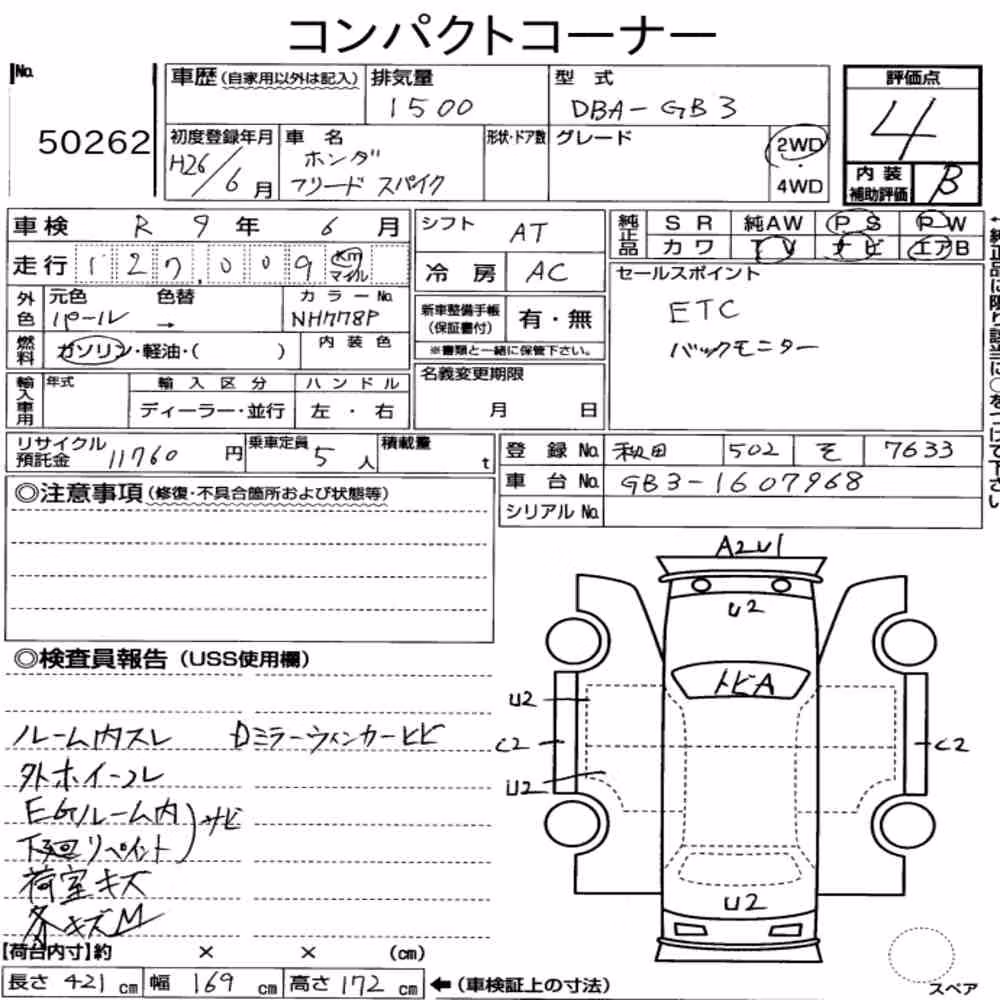 コンパクトコーナー
No.
50262
車歴(自家用以外は記入) 排気量 1500 型式 DBA-GB3
初度登録年月 H26/6月 車名 ホンダ フリード スパイク 形状・ドア数 グレード 2WD・4WD
評価点 4
内装補助評価 B
車検 R 9年 6月
走行 127,009 km マイル
外色 元色 パール 色替 → カラーNo. NH778P
燃料 ガソリン・軽油・( ) 内装色
輸入車用 年式 輸入区分 ディーラー・並行 ハンドル 左・右
シフト AT
冷房 AC
新車整備手帳(保証書付) 有・無
※書類と一緒に保管下さい。
名義変更期限 月 日
純正品 SR 純AW PS PW
カワ TV ナビ エアB
セールスポイント
ETC
バックモニター
←純正品に限り該当に○をつけて下さい
リサイクル預託金 11760円 乗車定員 5人 積載量 t
登録No. 秋田 502 そ 7633
車台No. GB3-1607968
シリアルNo.
◎注意事項(修復・不具合箇所および状態等)
◎検査員報告(USS使用欄)
ルーム内スレ Dミラーウィンカーヒビ
外ホイール
EGルーム内)サビ
下廻リペイント
荷室キズ
各キズM
A2U1
U2
トビA
U2
C2
C2
U2
U2
【荷台内寸】約 × × (cm)
長さ 421cm 幅 169cm 高さ 172cm ←(車検証上の寸法)
スペア